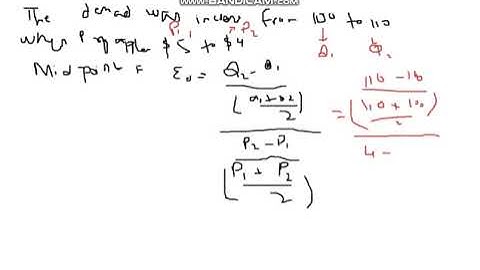 WWW.BANDICAM.COM
The demand was increa from 100 to 110
when P of apples $5 to $4
P1 P2
Q1 Q2
Midpoint = Ed = Q2 - Q1
(Q1 + Q2 / 2)
P2 - P1
(P1 + P2 / 2)
= 110 - 10
(110 + 100 / 2)
4 -